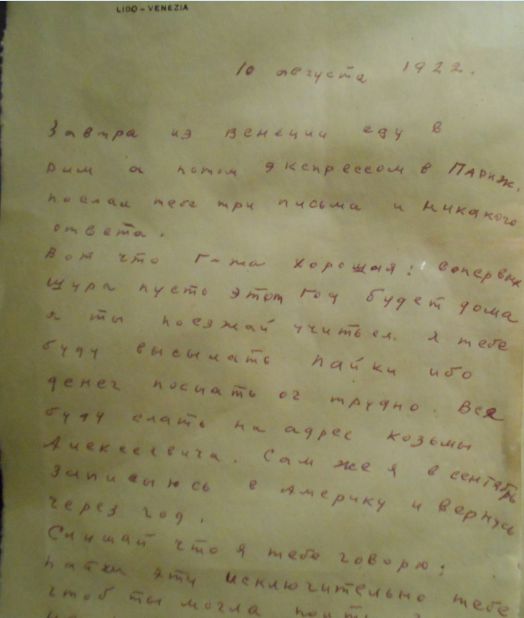 LIDO – VENEZIA
10 августа 1922.
Завтра из Венеции еду в
Рим а потом экспрессом в Париж.
послал тебе три письма и никакого
ответа.
Вот что г-жа хорошая: вопервых
Шура пусть этот год будет дома
а ты поезжай учиться. Я тебе
буду высылать пайки ибо
денег послать оч трудно. Все
буду слать на адрес козьмы
Алексеевича. Сам же я в сентябрь
в Америку и вернусь
через год.
Слушай что я тебе говорю:
пайки эти исключительно тебе
чтоб ты могла